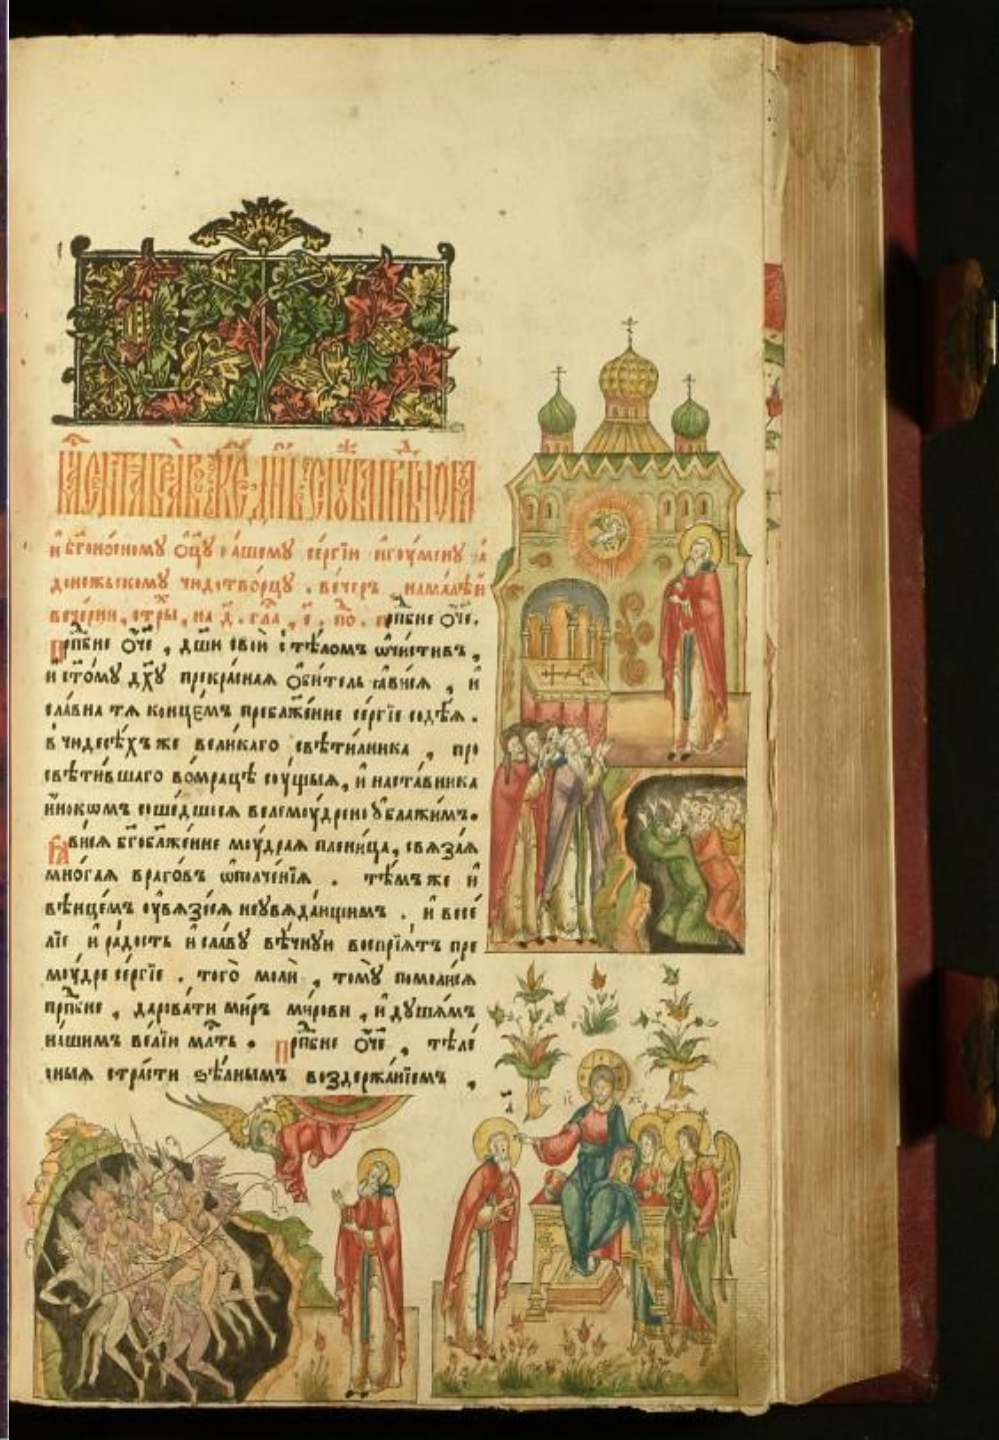 и҆ бг҃оно́сному ѻ҆ц҃у на́шему се́ргїи и҆гоу́мену ра
донежьскому чюдотво́рцу . ве́черъ . на ма́лѣй
вече́рни, стры, на д҃. гла́, є҃, по. прпⷣбне ѻ҆́ч҃е.
Прпⷣбне ѻ҆́ч҃е , дш҃и свои с тѣ́ломъ ѡ҆чи́стивъ ,
и҆ ст҃о́му дх҃у прекра́сная ѻ҆би́тель ꙗ҆ви́ся , и҆
сла́вна тя конце́мъ пребл҃же́нне се́ргїе содѣ́я .
в чюдесѣ́хъ же вели́каго свѣти́лника , про
свѣти́вшаго во мра́цѣ су́щыя, и҆ наста́вника
и҆́нокѡмъ соше́дшеся велему́дрено ᲂу҆блажи́мъ.
Ꙗ҆ви́ся бг҃обл҃же́нне му́драя плени́ца, связа́я
мно́гая враго́въ ѡ҆полче́нїя . тѣ́мъ же и҆
вѣнце́мъ ᲂу҆вязе́ся неᲂувяда́ющимъ . и҆ весе́
лїе и҆ ра́дость и҆ сла́ву вѣ́чную воспрїя́тъ пре
му́дре се́ргїе . того̀ моли́ , тому̀ помоли́ся
прпⷣбне , дарова́ти ми́ръ ми́рови , и҆ душа́мъ
на́шимъ ве́лїю ми́лть . Прпⷣбне ѻ҆́ч҃е , тѣле́
сныя стра́сти ѕѣ́лнымъ воздержа́нїемъ ,
і҃с х҃с